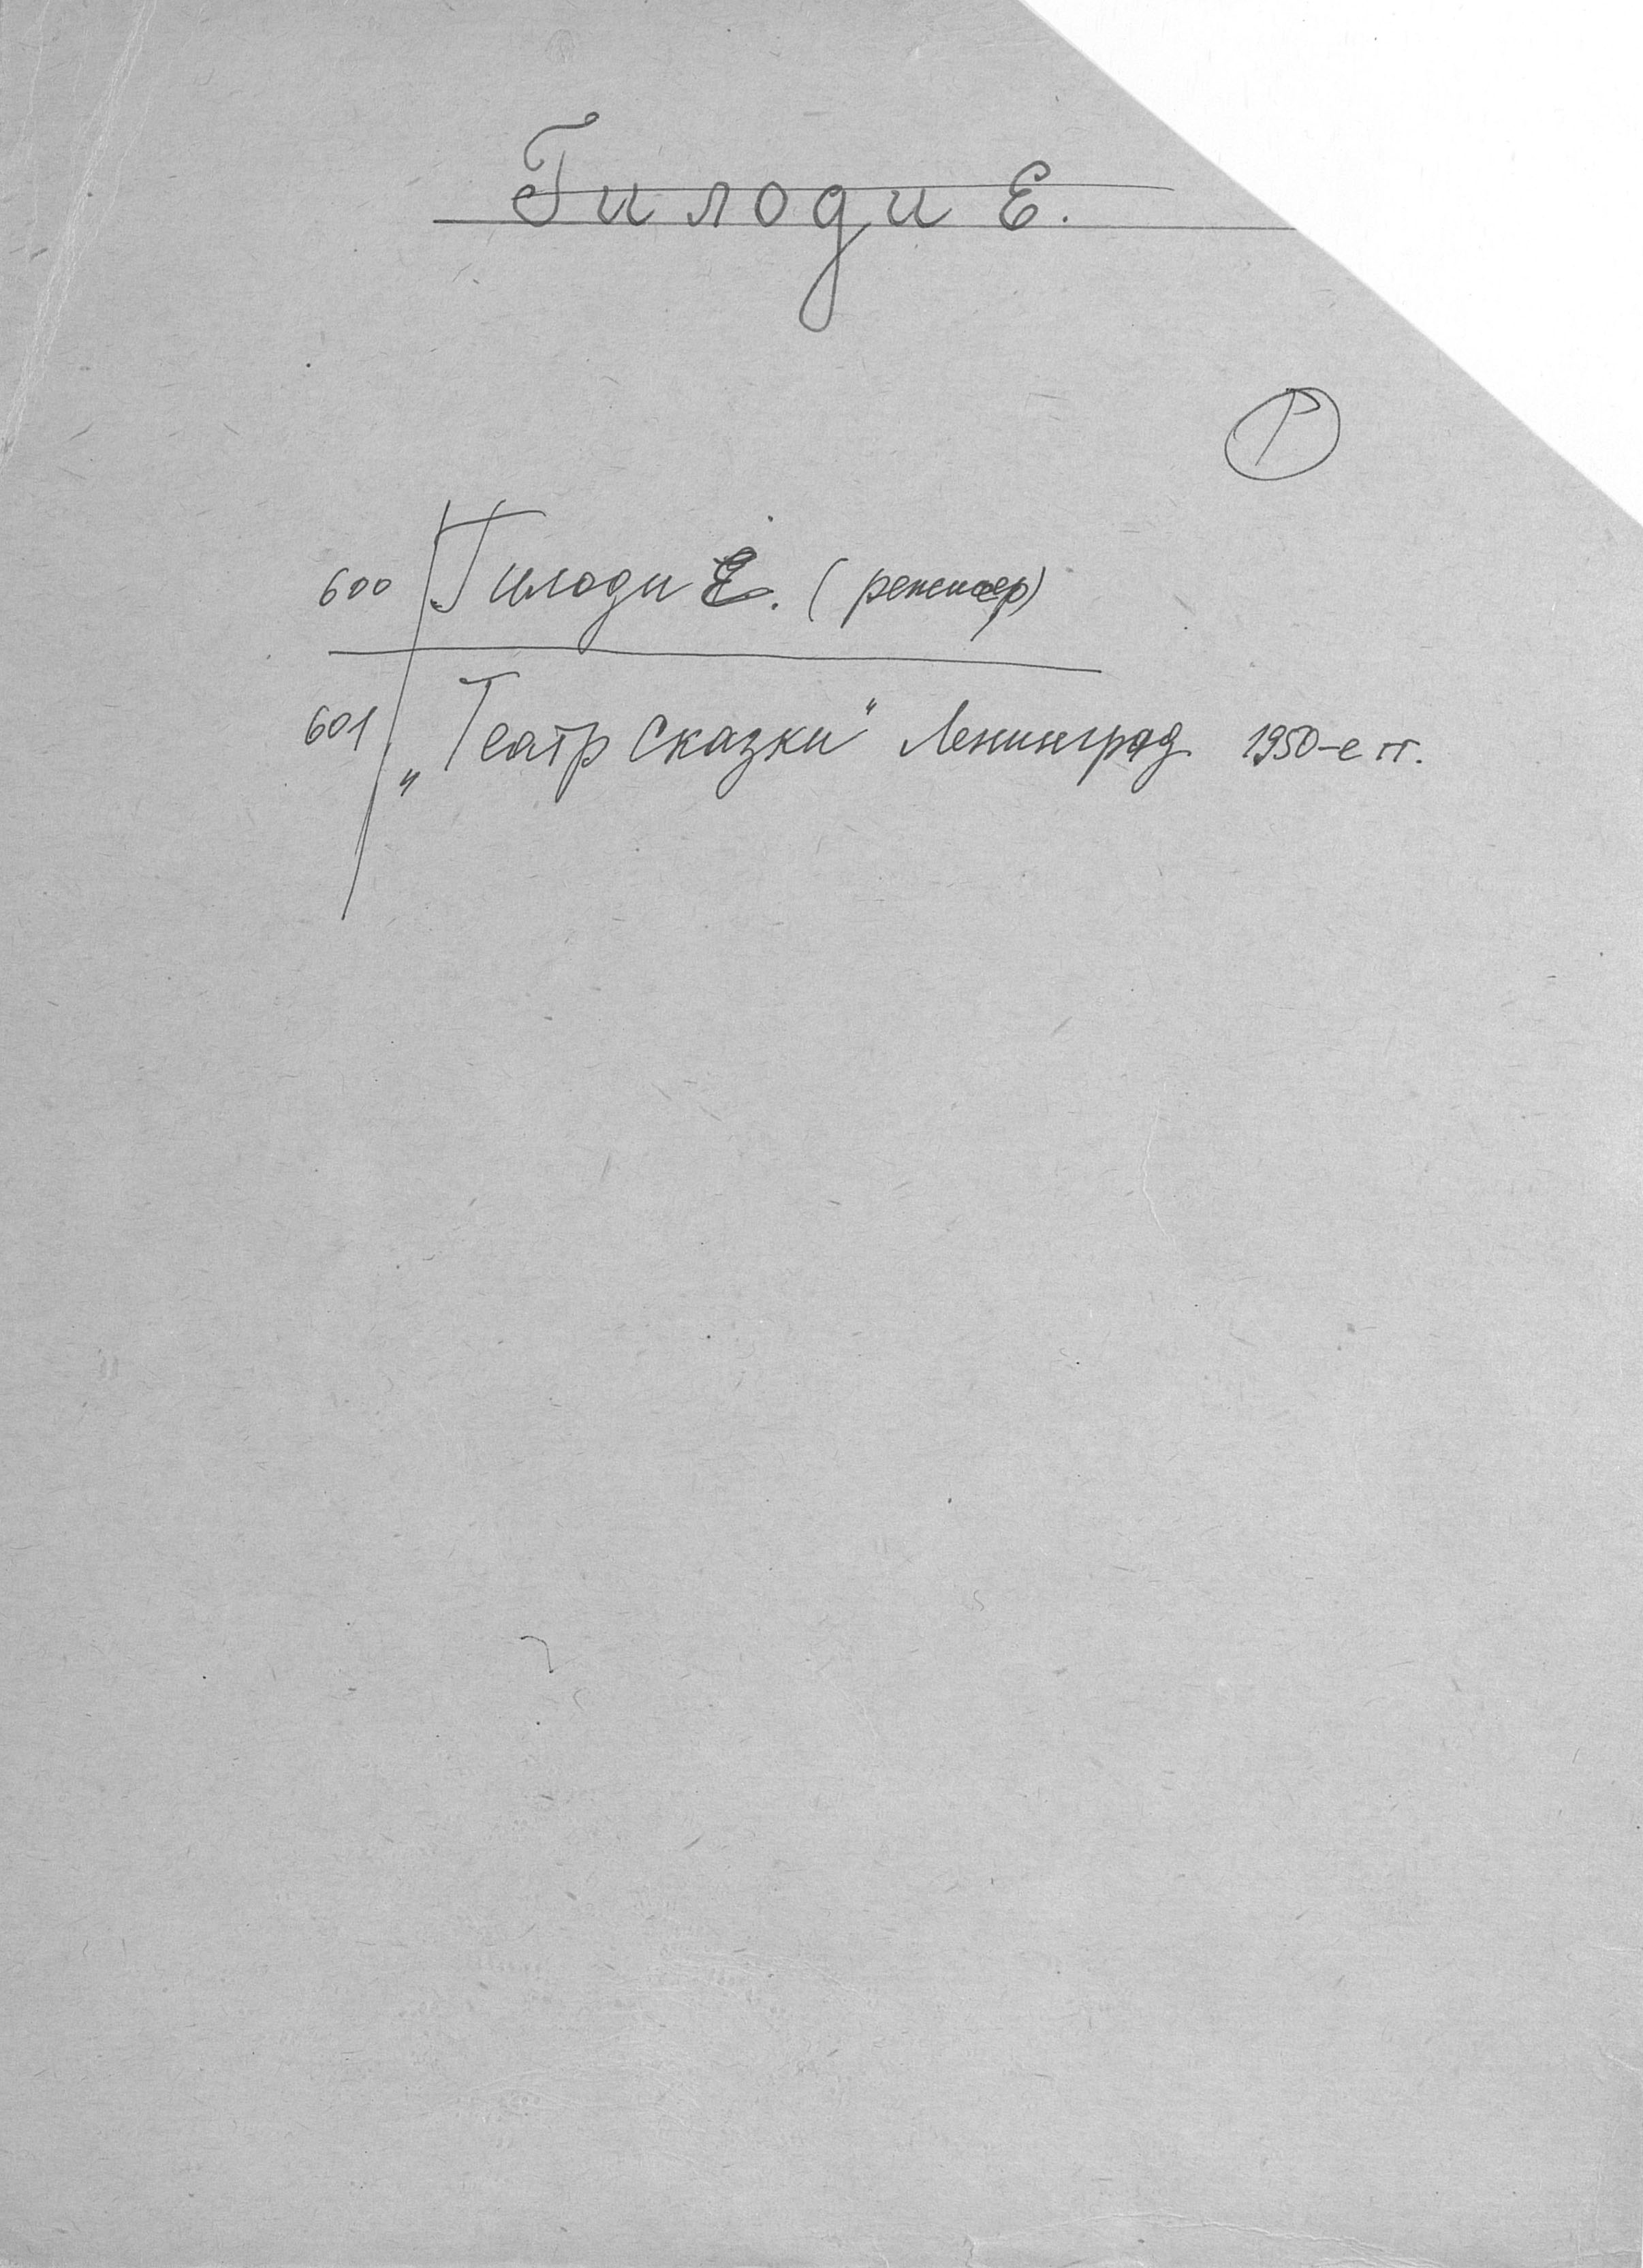 Гилоди Е.
Р
600 Гилоди Е. (режиссер)
601 „Театр сказки" Ленинград 1950-е гг.